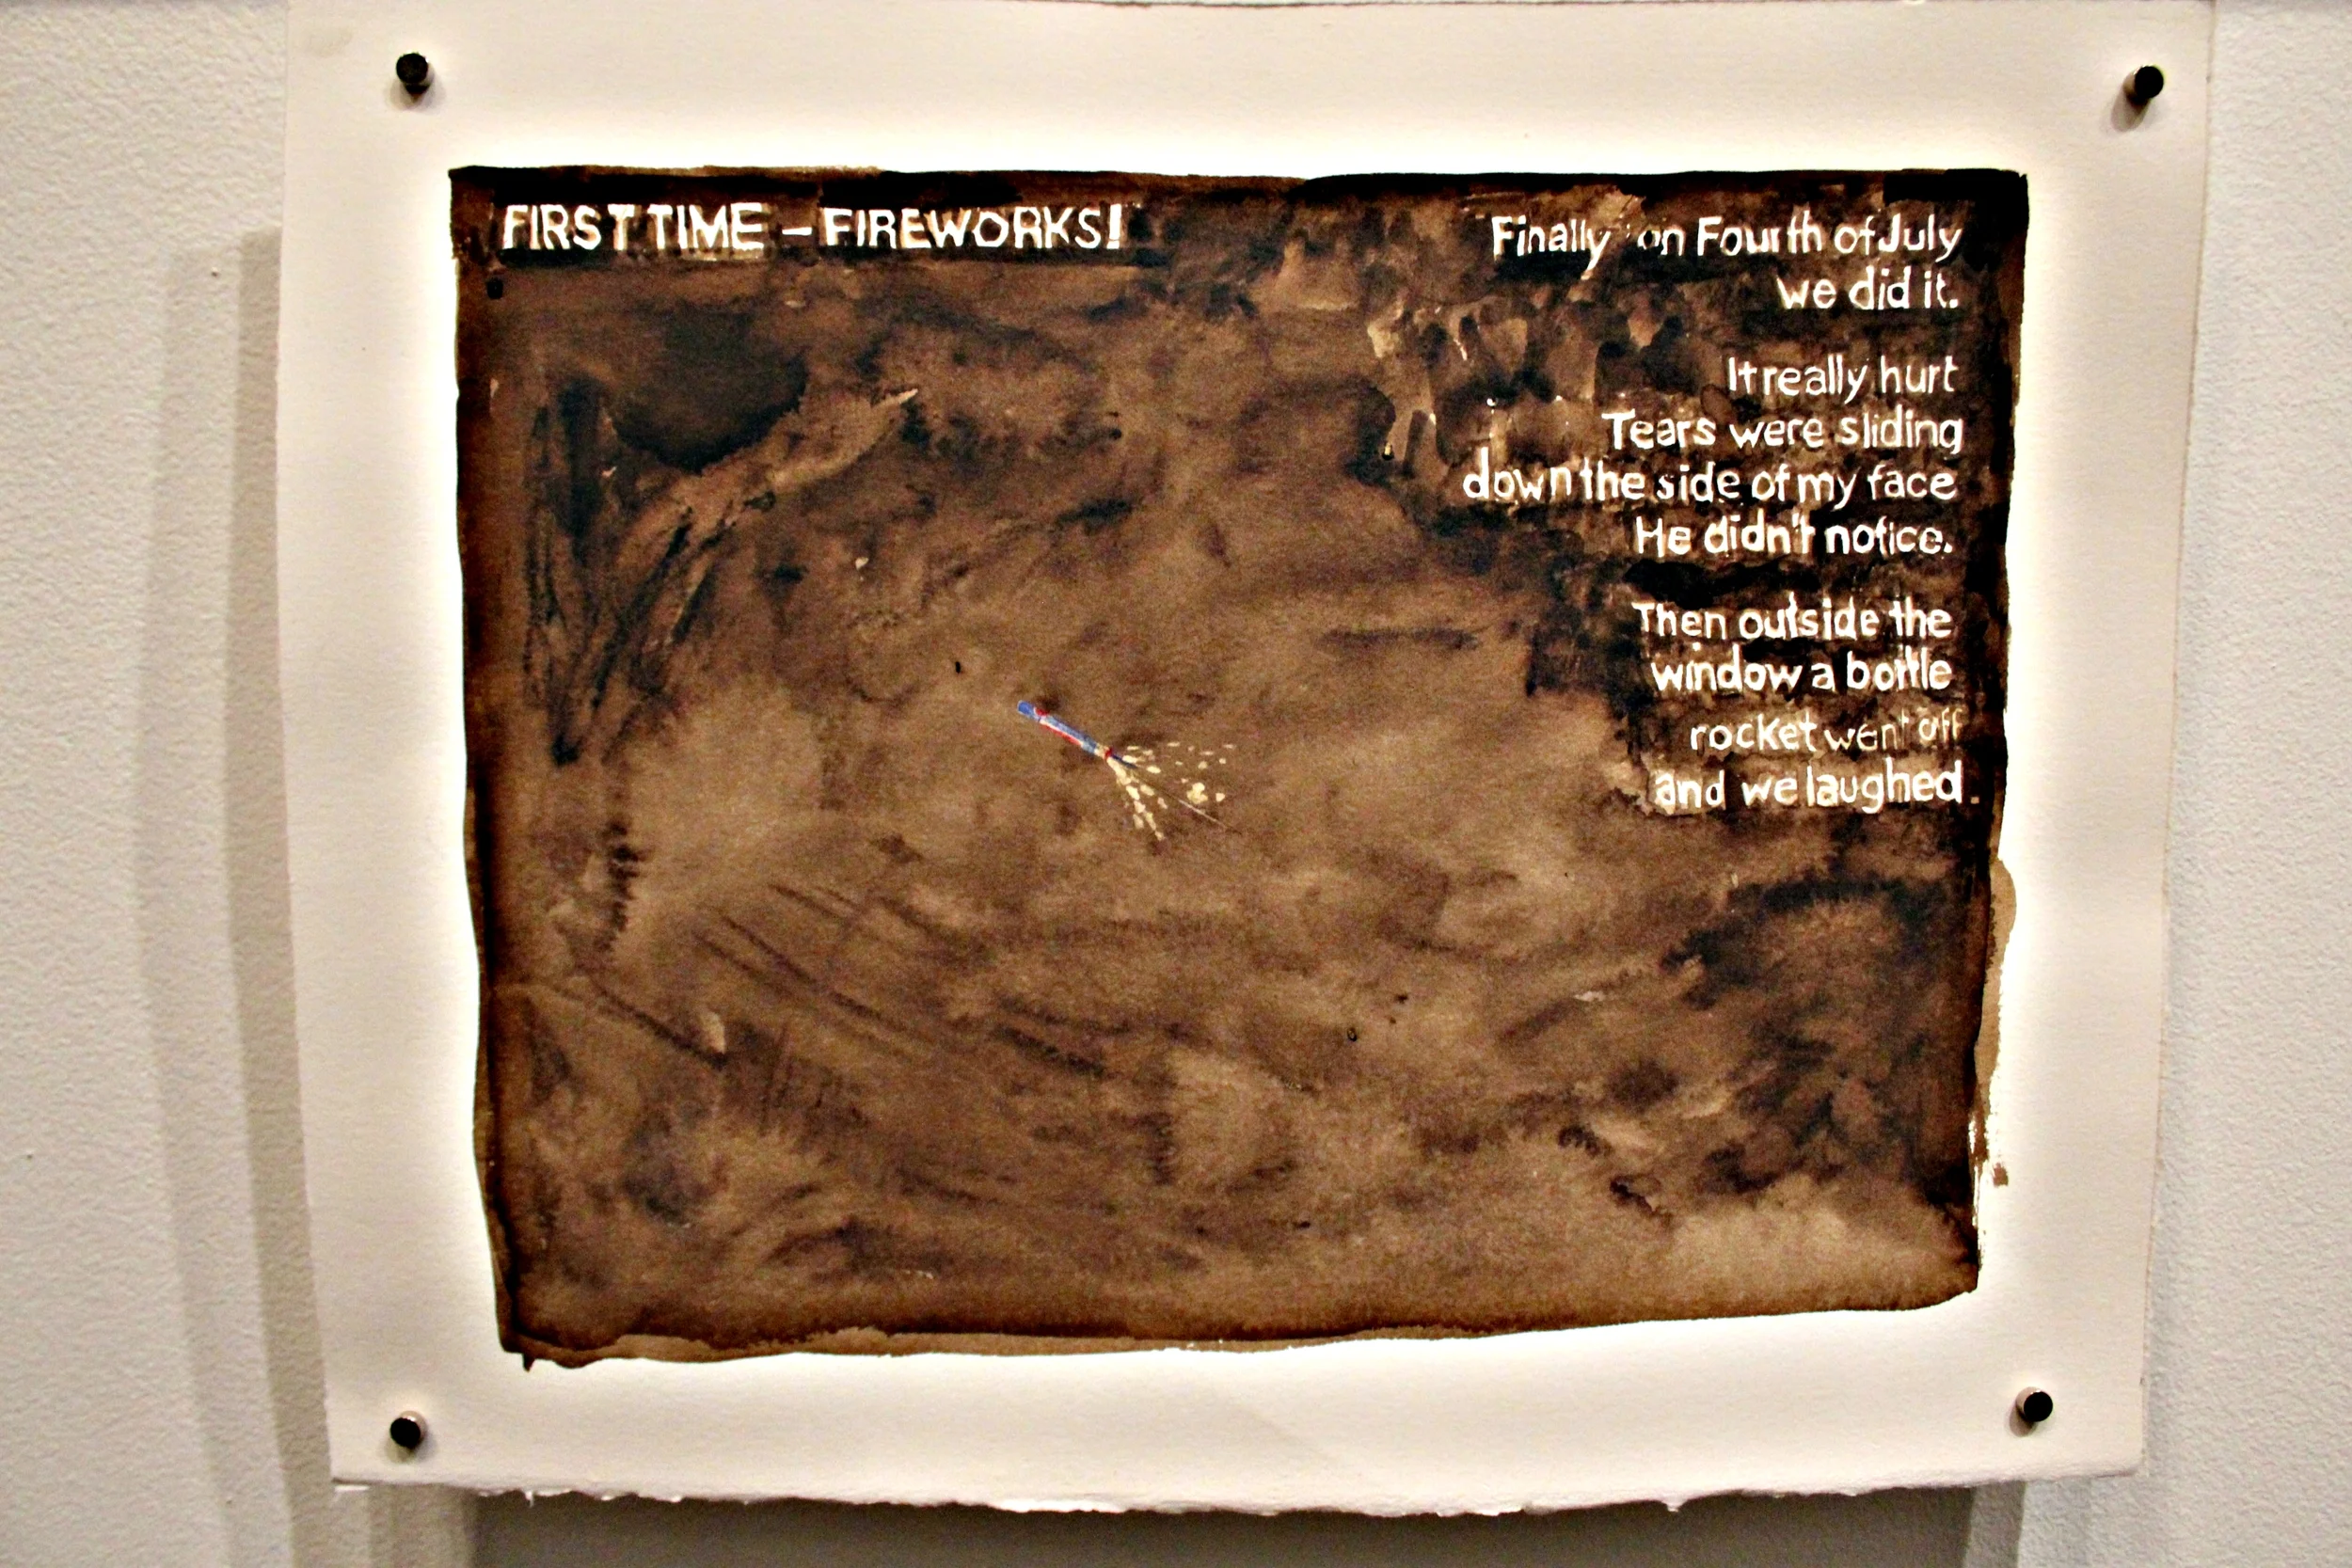 FIRST TIME – FIREWORKS!
Finally on Fourth of July
we did it.
It really hurt
Tears were sliding
down the side of my face
He didn't notice.
Then outside the
window a bottle
rocket went off
and we laughed.